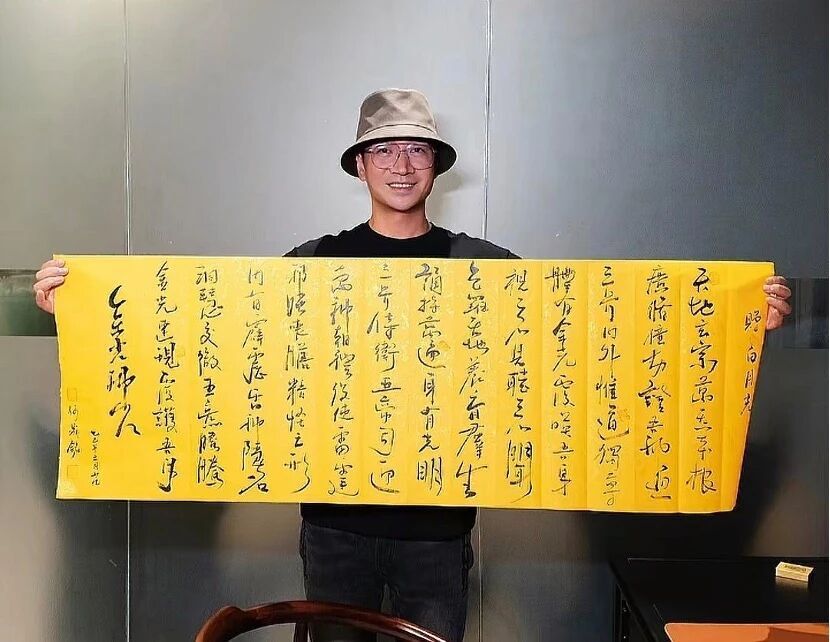 贈白月光
天地玄宗萬炁本根
廣脩億劫證吾神通
三界內外惟道獨尊
體有金光覆暎吾身
視之不見聽之不聞
包羅天地養育群生
誦持萬遍身有光明
三界侍衛五帝司迎
萬神朝禮役使雷霆
妖喪膽精怪亡形
內有霹靂雷神隱名
洞慧交徹五炁騰騰
金光速現覆護吾身
金光神咒
乙巳年二月